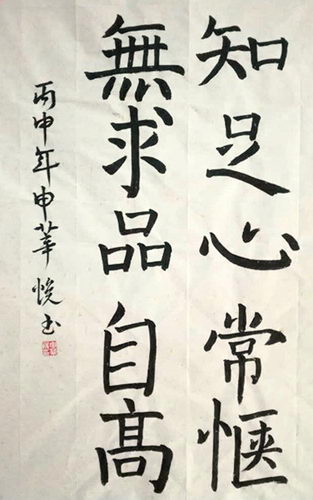 知足心常愜
無求品自髙
丙申年申華悦书